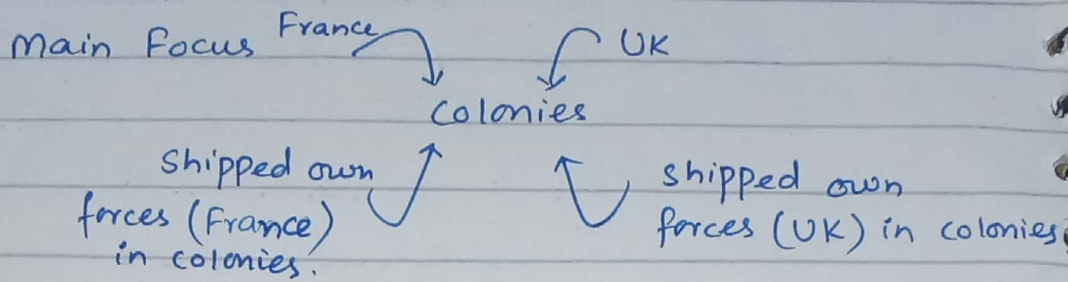 Main Focus France UK
Colonies
Shipped own
forces (France)
in colonies.
shipped own
forces (UK) in colonies